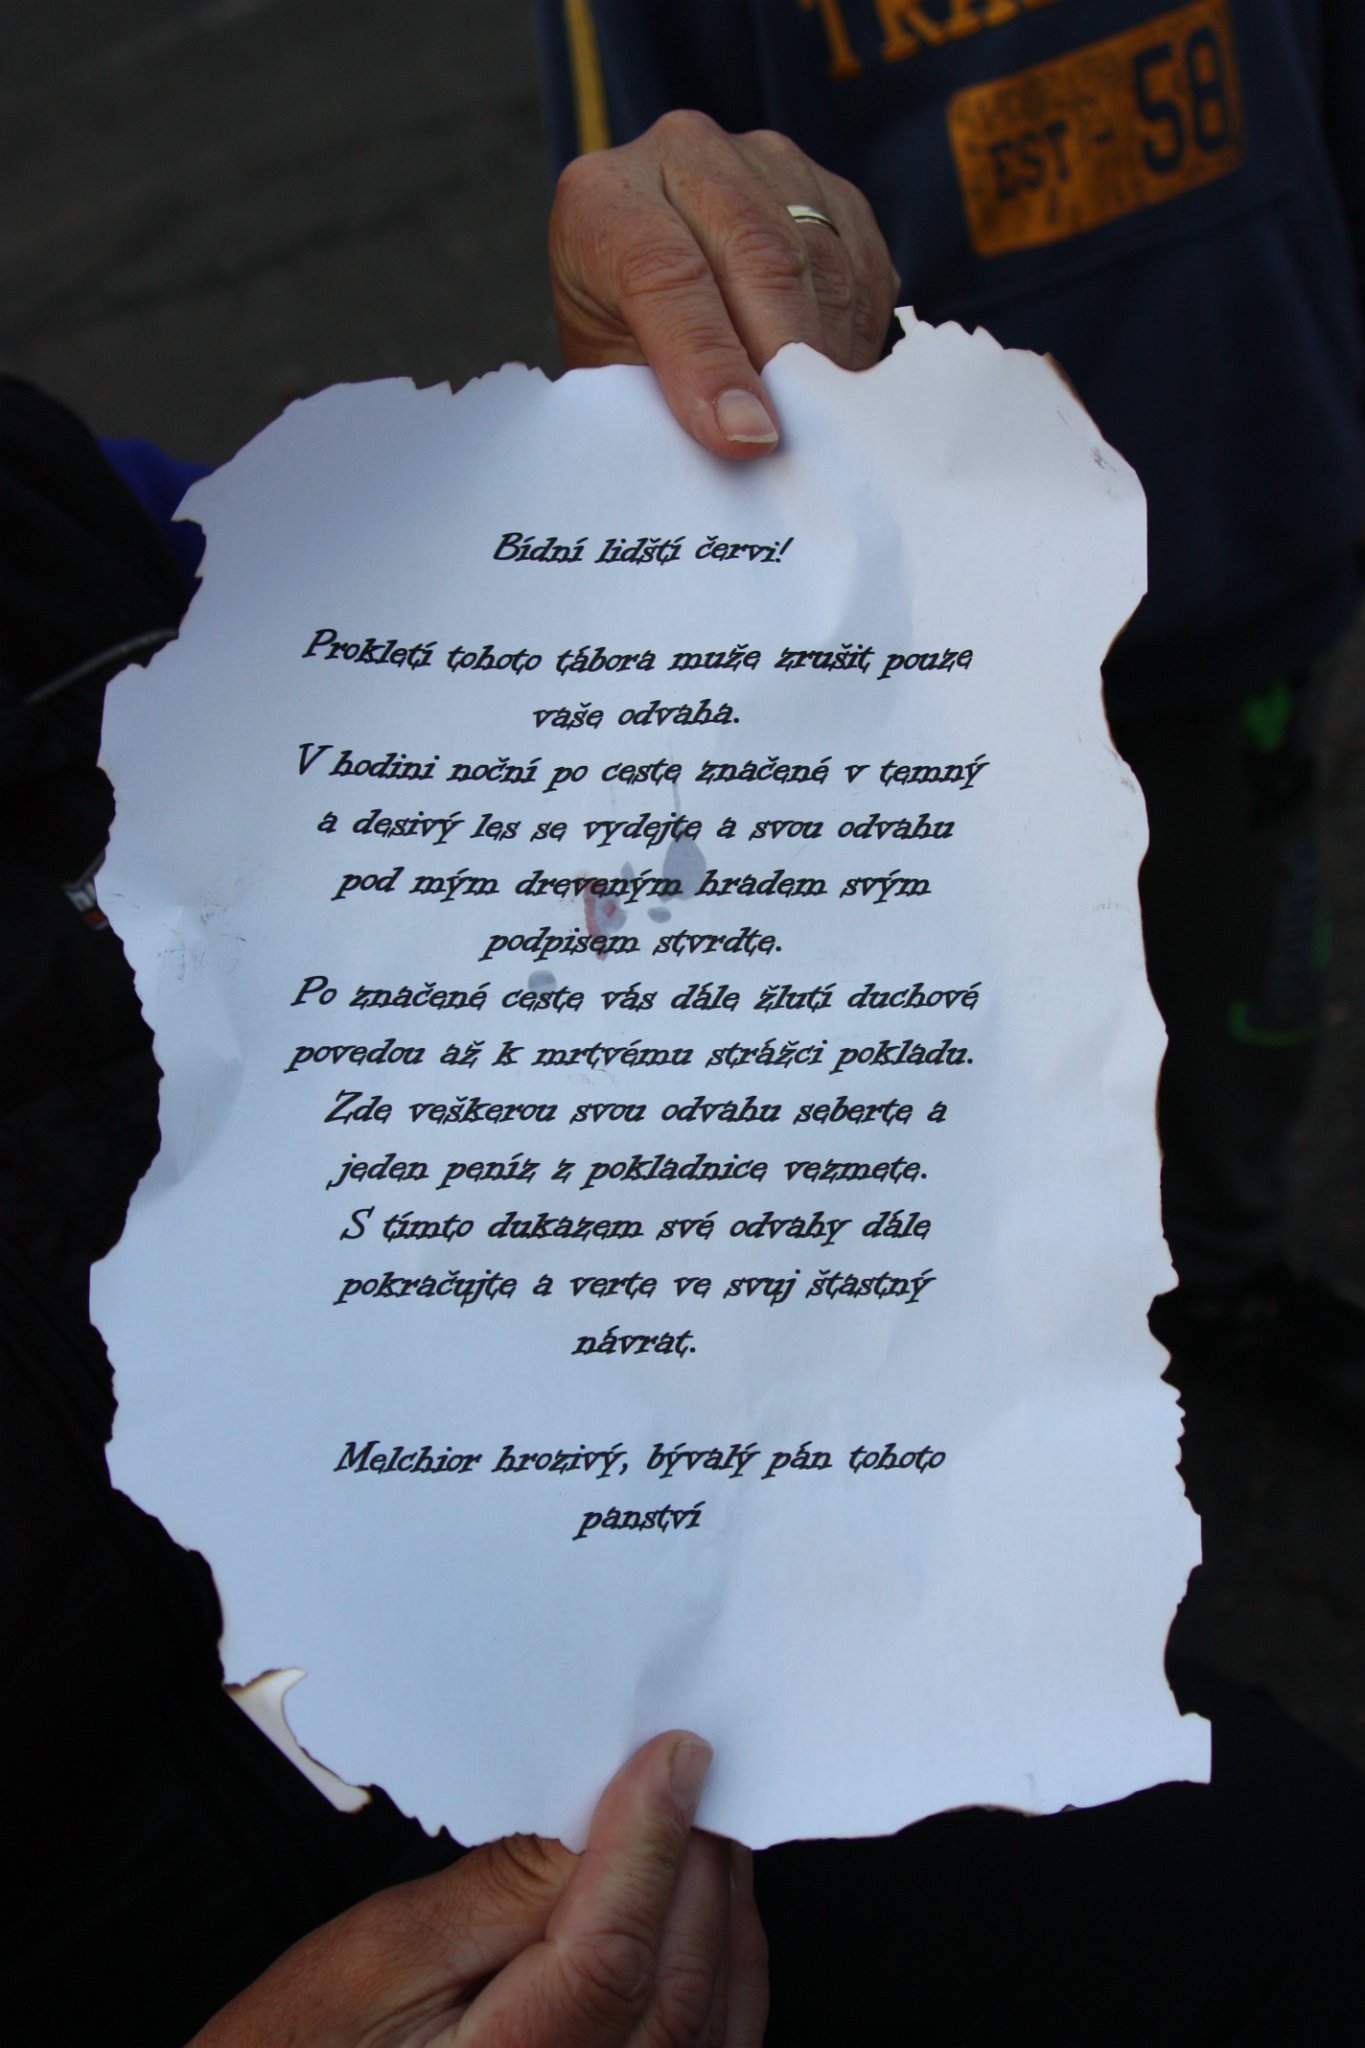 TRA
EST - 58
Bídní lidští červi!
Prokletí tohoto tábora muže zrušit pouze
vaše odvaha.
V hodini noční po ceste značené v temný
a desivý les se vydejte a svou odvahu
pod mým dreveným hradem svým
podpisem stvrdte.
Po značené ceste vás dále žlutí duchové
povedou až k mrtvému strážci pokladu.
Zde veškerou svou odvahu seberte a
jeden peníz z pokladnice vezmete.
S tímto dukazem své odvahy dále
pokračujte a verte ve svuj štastný
návrat.
Melchior hrozivý, bývalý pán tohoto
panství